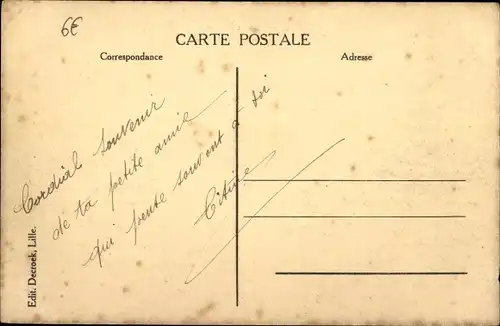 6€
CARTE POSTALE
Correspondance
Adresse
Cordial souvenir
de ta petite amie
qui pense souvent à toi
Titine
Edit. Decroek, Lille.